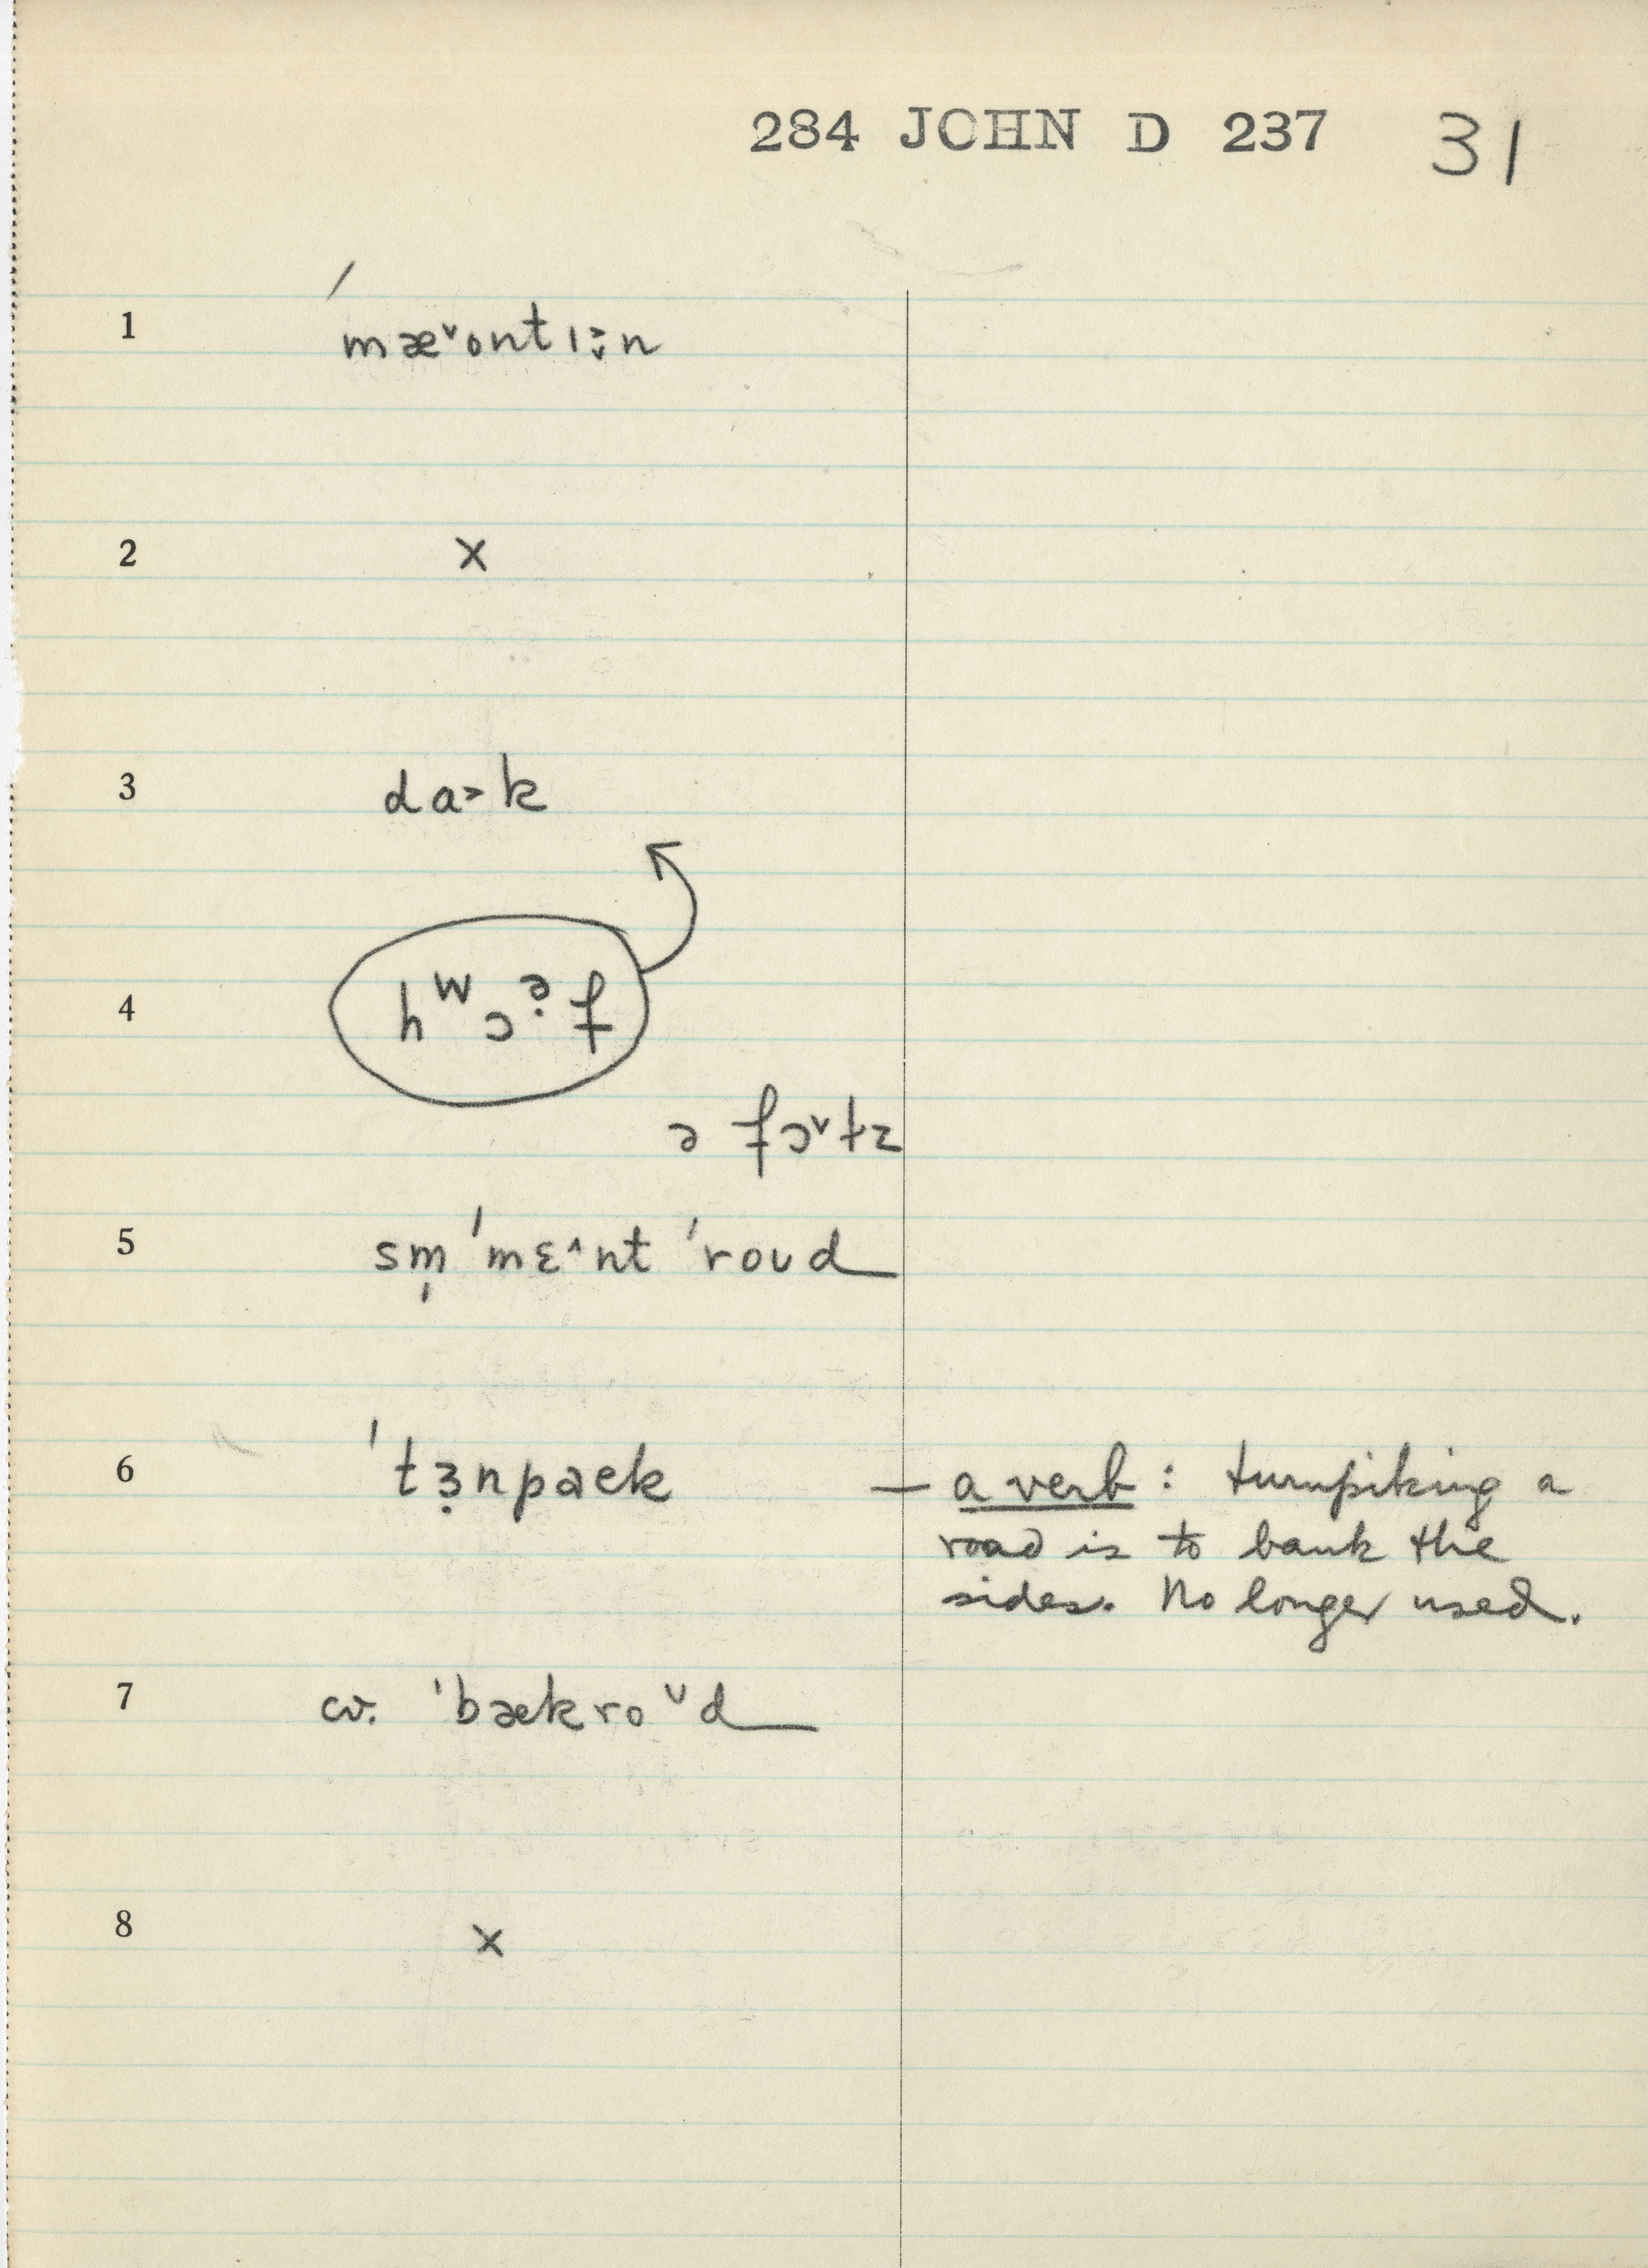 284 JOHN D 237 31
1 ˈmæ˅ontɪ̬̈n
2 x
3 da˃k
4 hwɔə̣f
ə fɔ˅tz
5 sm̩ ˈmɛ˄nt ˈroʊd
6 ˈtɜ̣npaɛk — a verb : turnpiking a
road is to bank the
sides. No longer used.
7 cv. ˈbækroᵛd
8 x